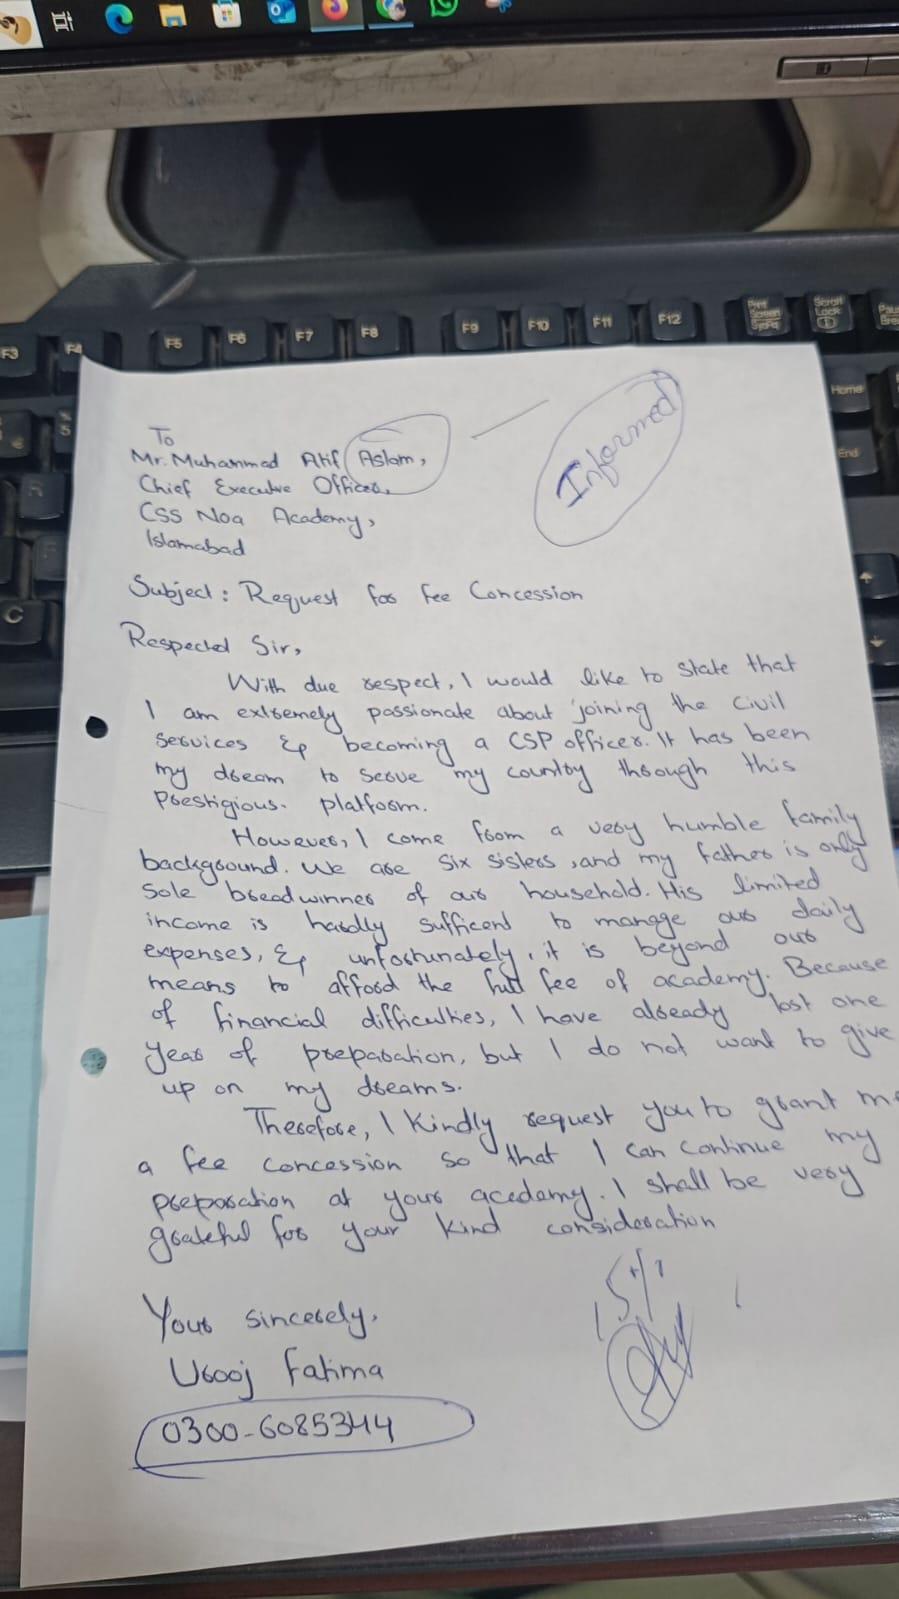 F3
F4
F5
F6
F7
F8
F9
F10
F11
F12
Print
Screen
SysRq
Scroll
Lock
Home
End
5
C
Informed
To
Mr. Muhammad Atif Aslam,
Chief Executive Officer,
CSS Noa Academy,
Islamabad
Subject: Request for fee Concession
Respected Sir,
With due respect, I would like to state that
I am extremely passionate about joining the civil
services & becoming a CSP officer. It has been
my dream to serve my country through this
Prestigious. platform.
However, I come from a very humble family
background. We are six sisters, and my father is only
sole breadwinner of our household. His limited
income is hardly sufficent to manage our daily
expenses, & unfortunately, it is beyond our
means to afford the full fee of academy. Because
of financial difficulties, I have already lost one
year of preparation, but I do not want to give
up on my dreams.
Therefore, I kindly request you to grant me
a fee concession so that I can continue my
preparation at your acedamy. I shall be very
grateful for your kind consideration
Your sincerely,
Urooj Fatima
0300-6085344